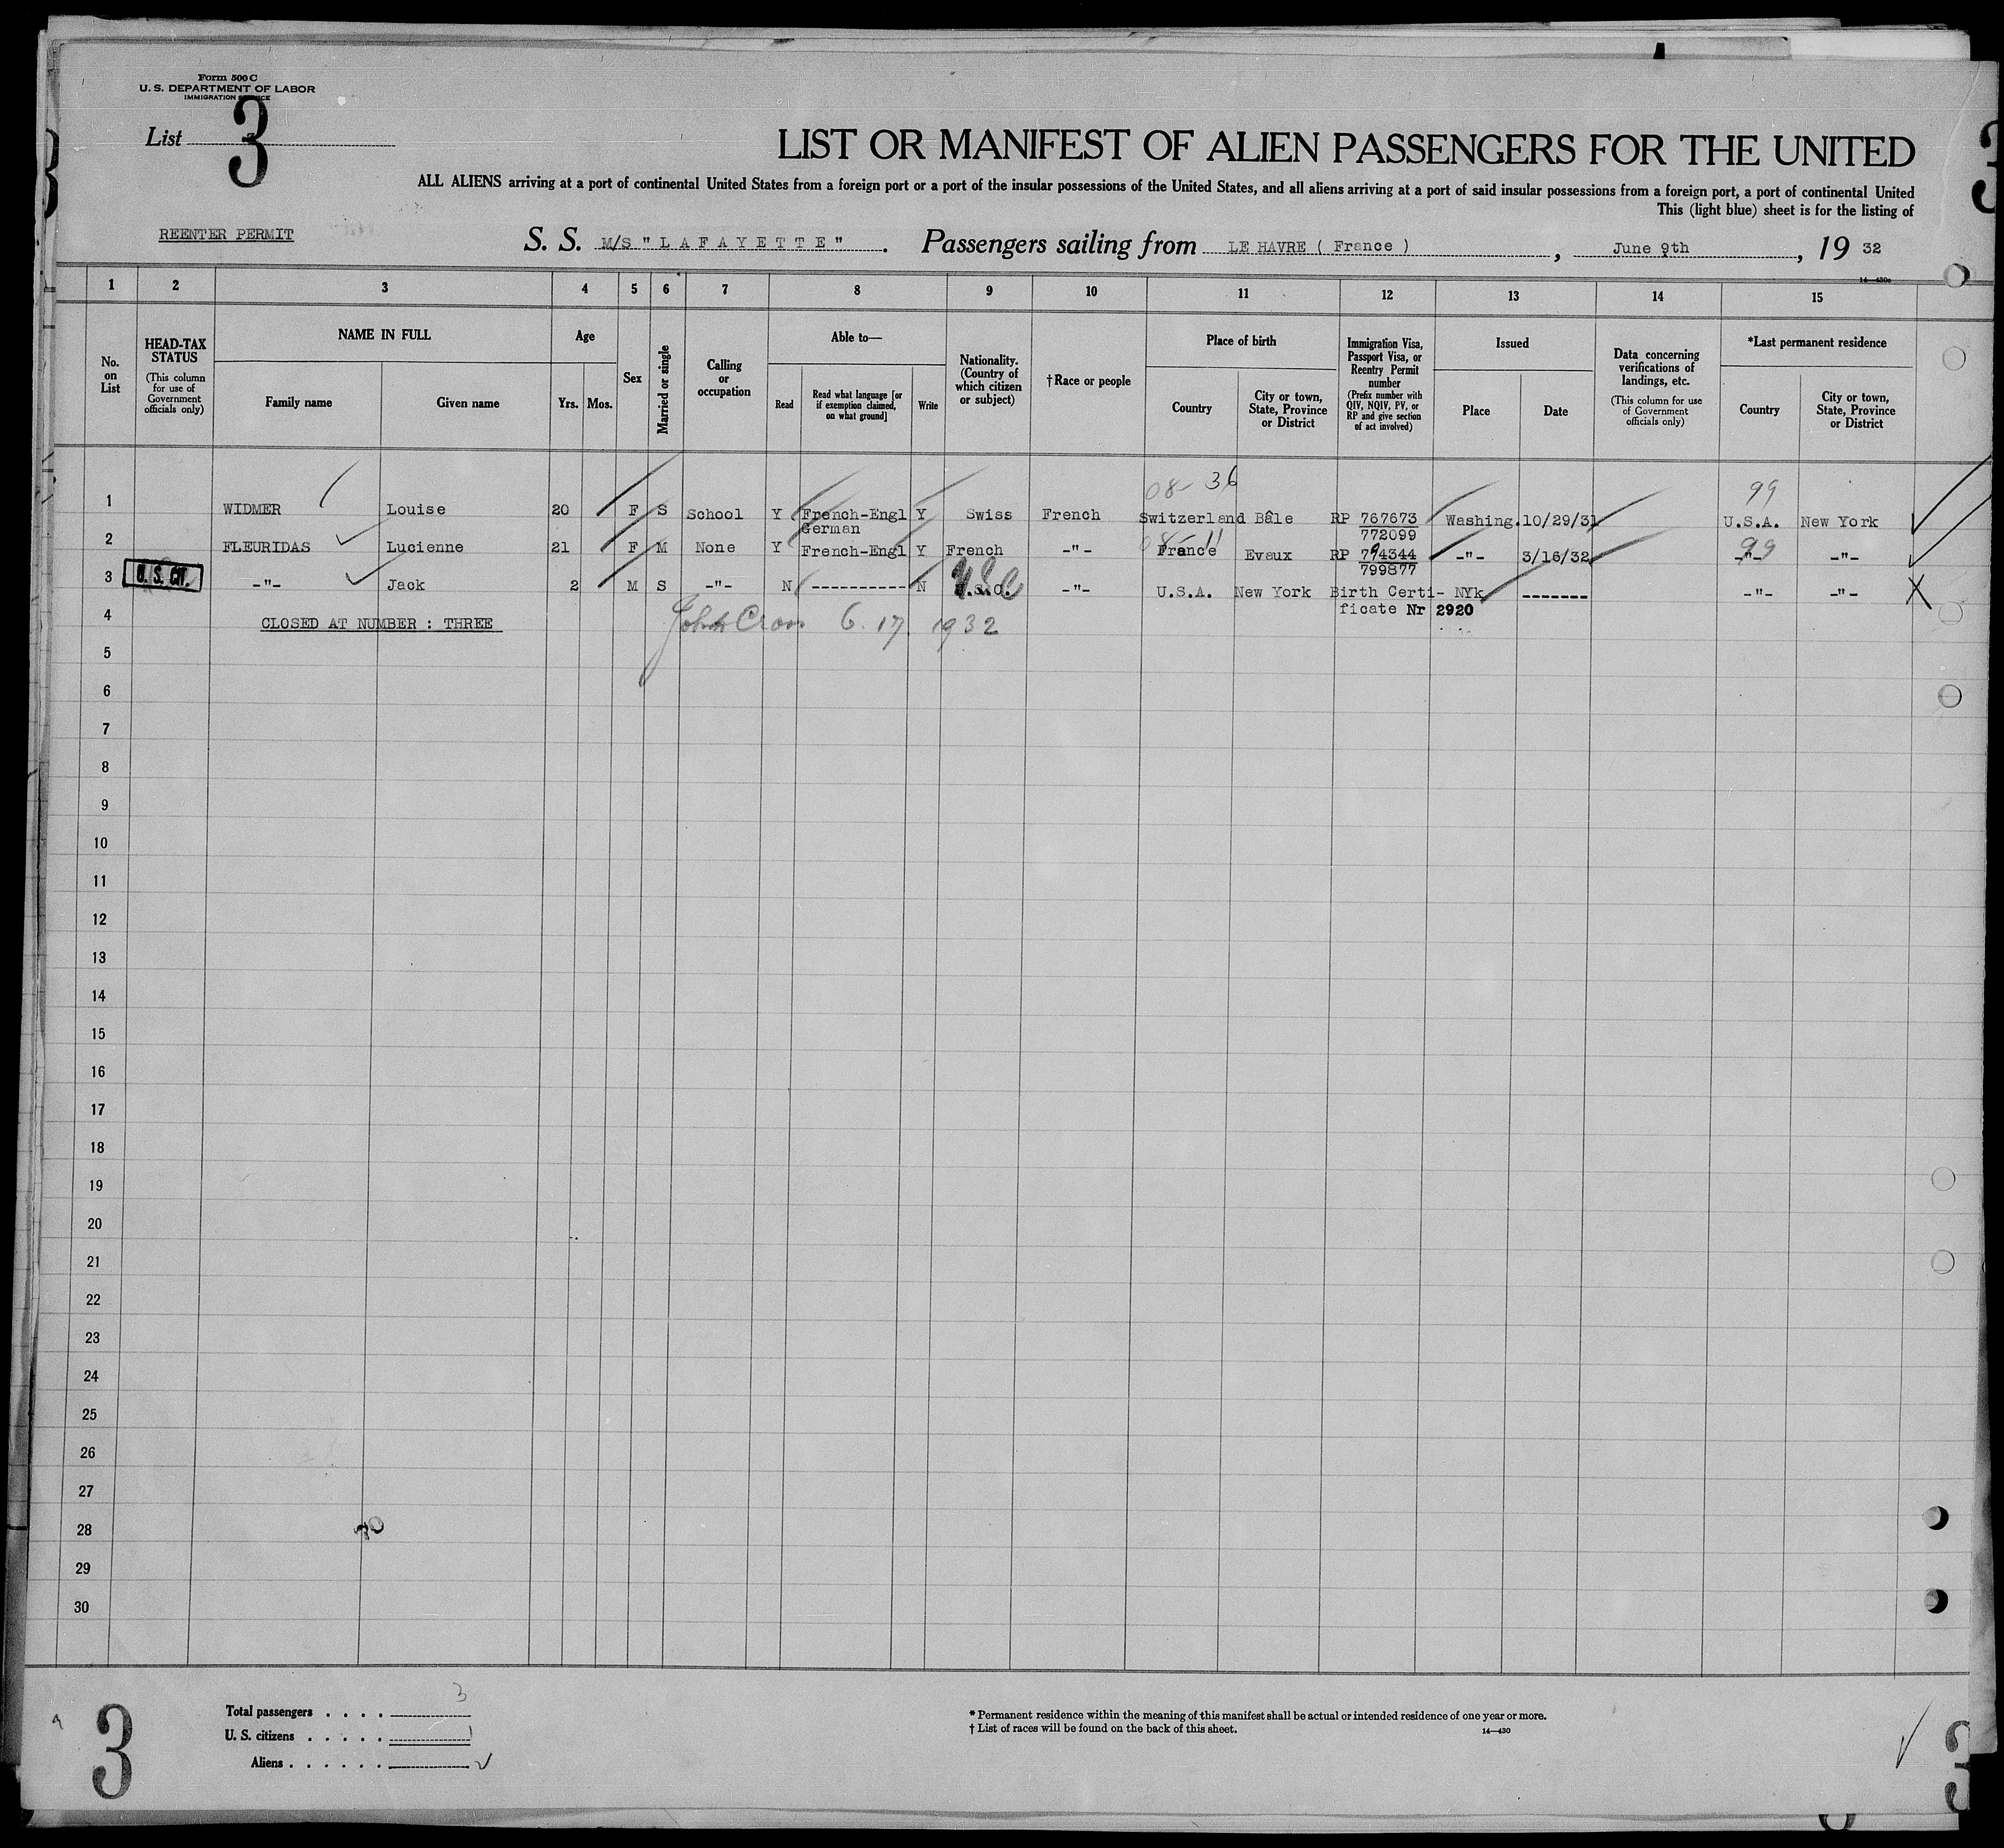 Form 500 C
U. S. DEPARTMENT OF LABOR
IMMIGRATION SERVICE
List 3
LIST OR MANIFEST OF ALIEN PASSENGERS FOR THE UNITED
ALL ALIENS arriving at a port of continental United States from a foreign port or a port of the insular possessions of the United States, and all aliens arriving at a port of said insular possessions from a foreign port, a port of continental United
This (light blue) sheet is for the listing of
REENTER PERMIT
S. S. M/S " L A F A Y E T T E " . Passengers sailing from LE HAVRE ( France ) , June 9th , 19 32
14—430c
1 2 3 4 5 6 7 8 9 10 11 12 13 14 15
No. on List
HEAD-TAX STATUS
(This column for use of Government officials only)
NAME IN FULL
Family name
Given name
Age
Yrs. Mos.
Sex
Married or single
Calling or occupation
Able to—
Read
Read what language [or if exemption claimed, on what ground]
Write
Nationality. (Country of which citizen or subject)
†Race or people
Place of birth
Country
City or town, State, Province or District
Immigration Visa, Passport Visa, or Reentry Permit number
(Prefix number with QIV, NQIV, PV, or RP and give section of act involved)
Issued
Place
Date
Data concerning verifications of landings, etc.
(This column for use of Government officials only)
*Last permanent residence
Country
City or town, State, Province or District
08- 36 99
1 WIDMER Louise 20 F S School Y French-Engl Y Swiss French Switzerland Bâle RP 767673 Washing. 10/29/31 U.S.A. New York
German 772099
08- 11 99
2 FLEURIDAS Lucienne 21 F M None Y French-Engl Y French -"- France Evaux RP 794344 -"- 3/16/32 -"- -"-
799877
3 U. S. CIT. -"- Jack 2 M S -"- N ----------- N U.S.C. -"- U.S.A. New York Birth Certi- NYk ------- -"- -"-
ficate Nr 2920
4 CLOSED AT NUMBER : THREE John Cron 6. 17. 1932
5
6
7
8
9
10
11
12
13
14
15
16
17
18
19
20
21
22
23
24
25
26
27
28
29
30
3
Total passengers . . . . 3
U. S. citizens . . . . . 1
Aliens . . . . . . 2
* Permanent residence within the meaning of this manifest shall be actual or intended residence of one year or more.
† List of races will be found on the back of this sheet.
14—430